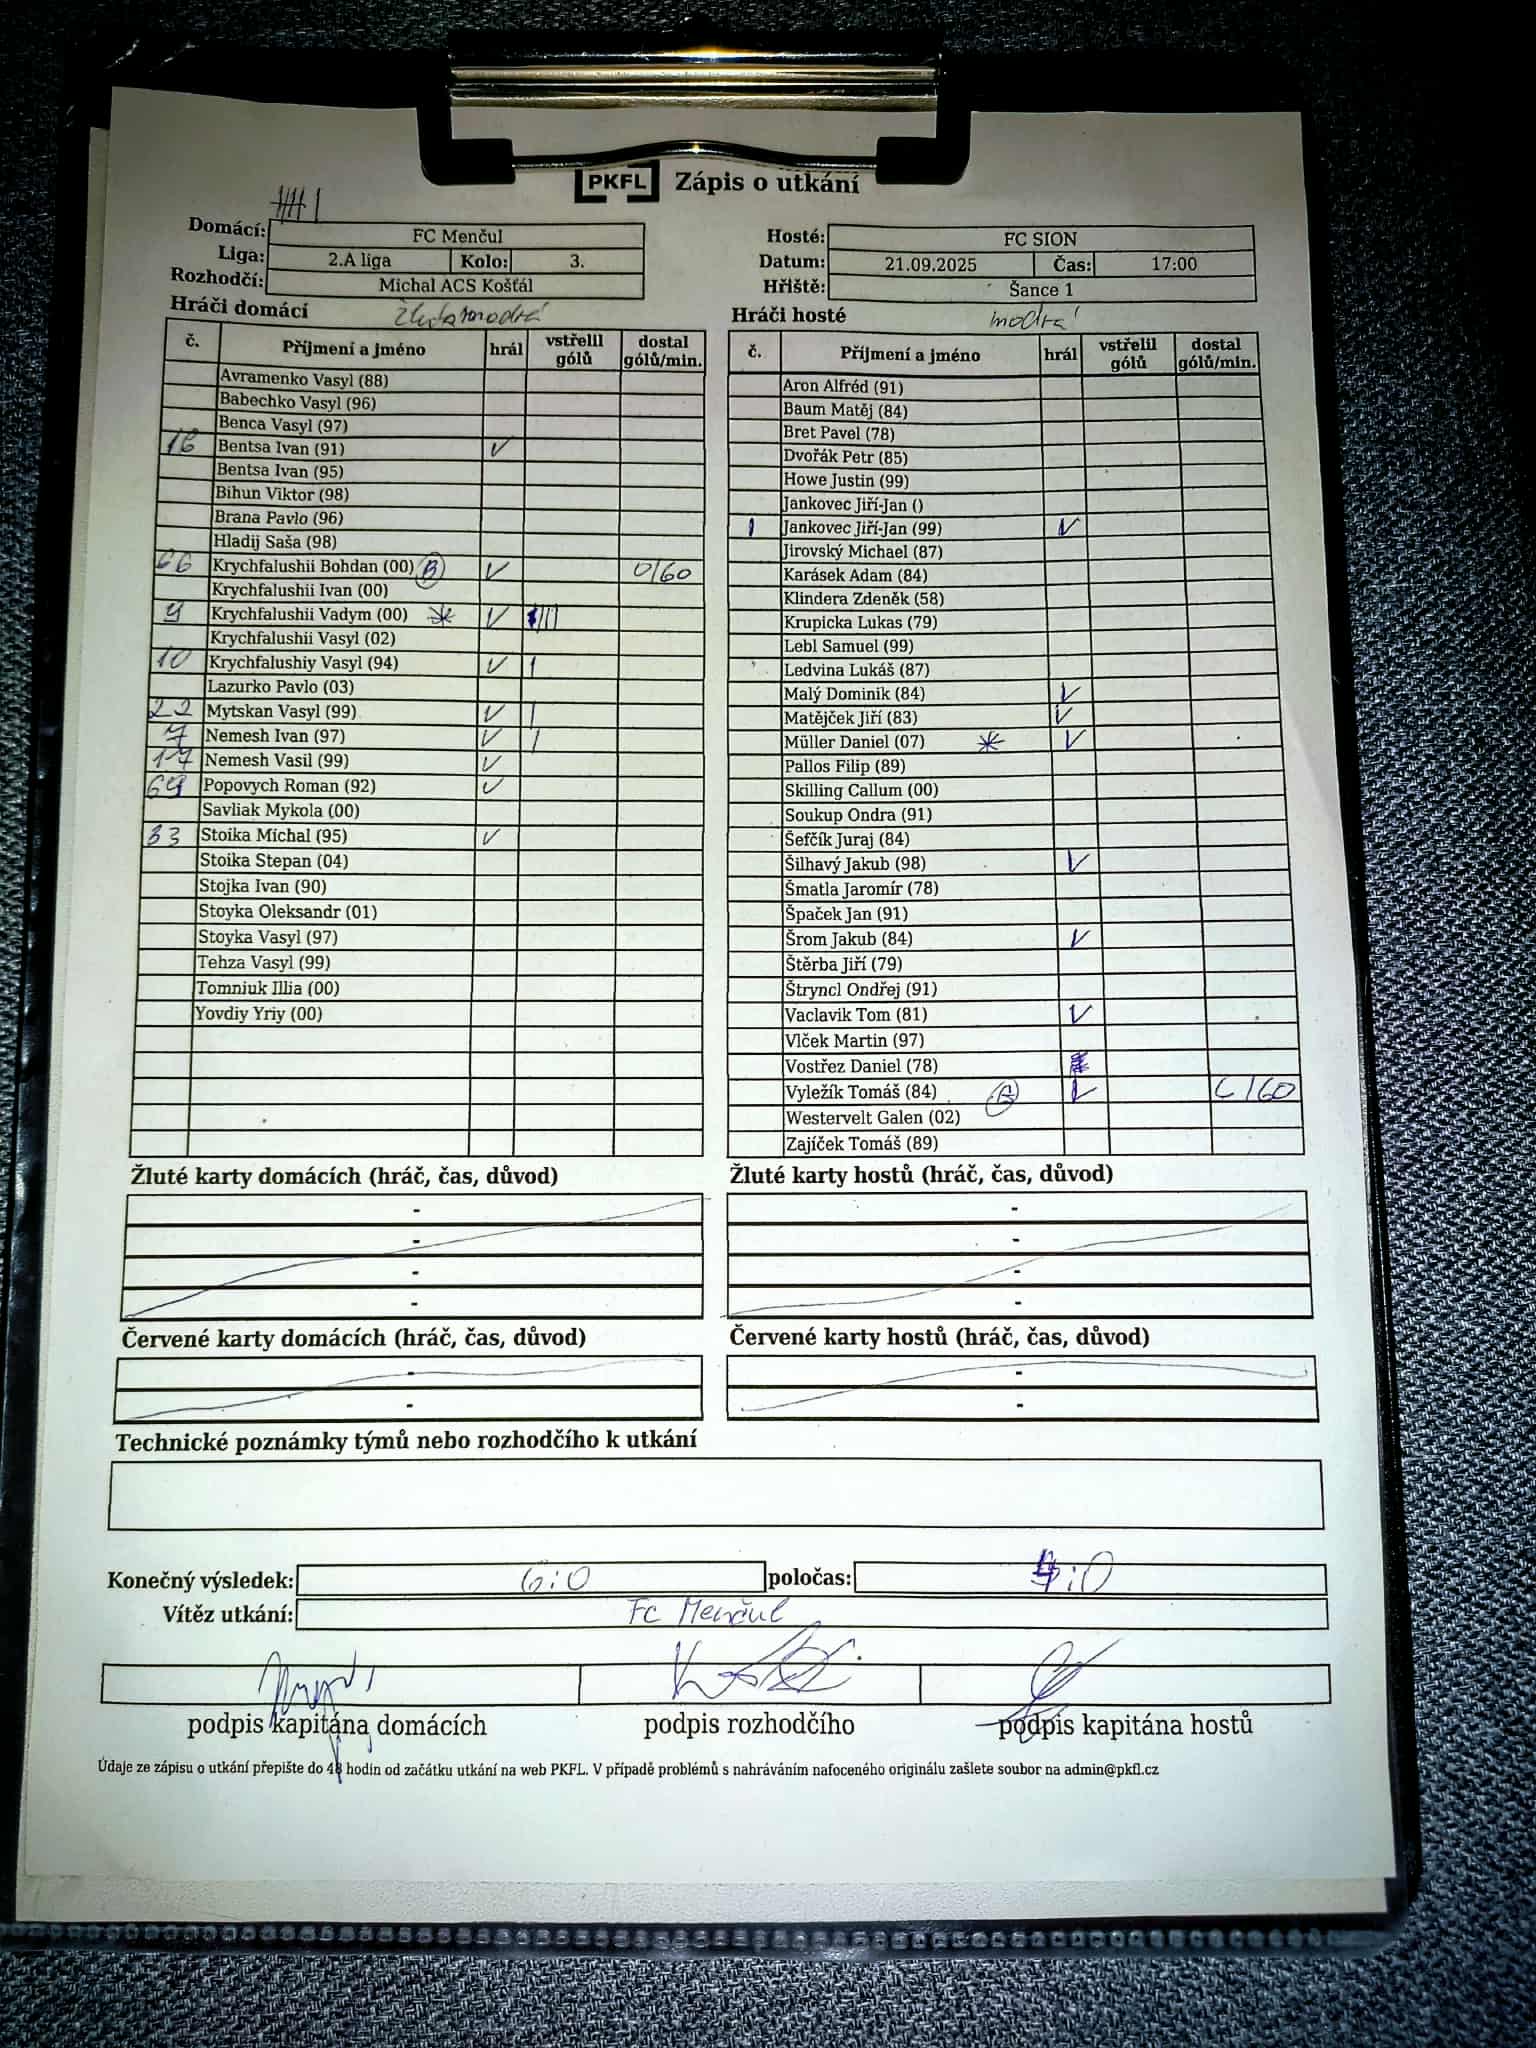 PKFL Zápis o utkání
Domácí: FC Menčul
Liga: 2.A liga Kolo: 3.
Rozhodčí: Michal ACS Košťál
Hosté: FC SION
Datum: 21.09.2025 Čas: 17:00
Hřiště: Šance 1
Hráči domácí
č. Příjmení a jméno hrál vstřelil gólů dostal gólů/min.
Avramenko Vasyl (88)
Babechko Vasyl (96)
Benca Vasyl (97)
16 Bentsa Ivan (91) ✓
Bentsa Ivan (95)
Bihun Viktor (98)
Brana Pavlo (96)
Hladij Saša (98)
66 Krychfalushii Bohdan (00) B ✓ 0/60
Krychfalushii Ivan (00)
9 Krychfalushii Vadym (00) * ✓
Krychfalushii Vasyl (02)
10 Krychfalushiy Vasyl (94) ✓ |
Lazurko Pavlo (03)
22 Mytskan Vasyl (99) ✓ |
7 Nemesh Ivan (97) ✓ |
17 Nemesh Vasil (99) ✓
69 Popovych Roman (92) ✓
Savliak Mykola (00)
33 Stoika Míchal (95) ✓
Stoika Stepan (04)
Stojka Ivan (90)
Stoyka Oleksandr (01)
Stoyka Vasyl (97)
Tehza Vasyl (99)
Tomniuk Illia (00)
Yovdiy Yriy (00)
Hráči hosté modrá
č. Příjmení a jméno hrál vstřelil gólů dostal gólů/min.
Aron Alfréd (91)
Baum Matěj (84)
Bret Pavel (78)
Dvořák Petr (85)
Howe Justin (99)
Jankovec Jiří-Jan ()
1 Jankovec Jiří-Jan (99) ✓
Jirovský Michael (87)
Karásek Adam (84)
Klindera Zdeněk (58)
Krupicka Lukas (79)
Lebl Samuel (99)
Ledvina Lukáš (87)
Malý Dominik (84) ✓
Matějček Jiří (83) ✓
Müller Daniel (07) * ✓
Pallos Filip (89)
Skilling Callum (00)
Soukup Ondra (91)
Šefčík Juraj (84)
Šilhavý Jakub (98) ✓
Šmatla Jaromír (78)
Špaček Jan (91)
Šrom Jakub (84) ✓
Štěrba Jiří (79)
Štryncl Ondřej (91)
Vaclavik Tom (81) ✓
Vlček Martin (97)
Vostřez Daniel (78)
Vyležík Tomáš (84) ✓ 6/60
Westervelt Galen (02)
Zajíček Tomáš (89)
Žluté karty domácích (hráč, čas, důvod)
-
-
-
-
Žluté karty hostů (hráč, čas, důvod)
-
-
-
-
Červené karty domácích (hráč, čas, důvod)
-
-
Červené karty hostů (hráč, čas, důvod)
-
-
Technické poznámky týmů nebo rozhodčího k utkání
Konečný výsledek: 6:0 poločas: 4:0
Vítěz utkání: FC Menčul
podpis kapitána domácích podpis rozhodčího podpis kapitána hostů
Údaje ze zápisu o utkání přepište do 48 hodin od začátku utkání na web PKFL. V případě problémů s nahráváním nafoceného originálu zašlete soubor na admin@pkfl.cz